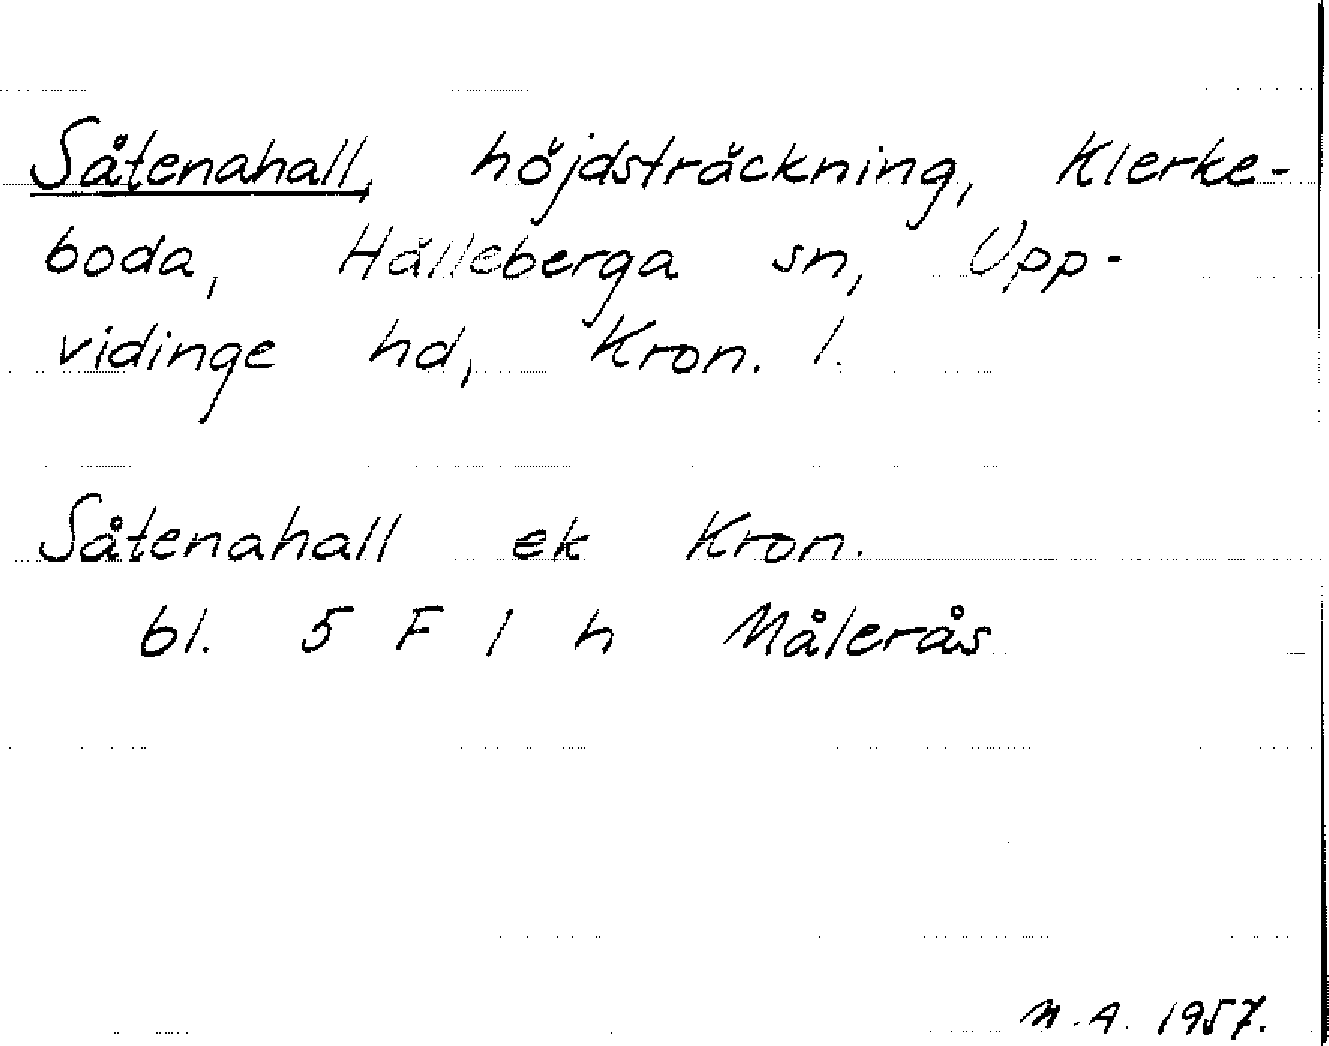 Såtenahall, höjdsträckning, Klerke-
boda, Hälleberga sn, Upp-
vidinge hd, Kron. l.
Såtenahall ek Kron.
bl. 5 F 1 h Målerås
M.A. 1957.